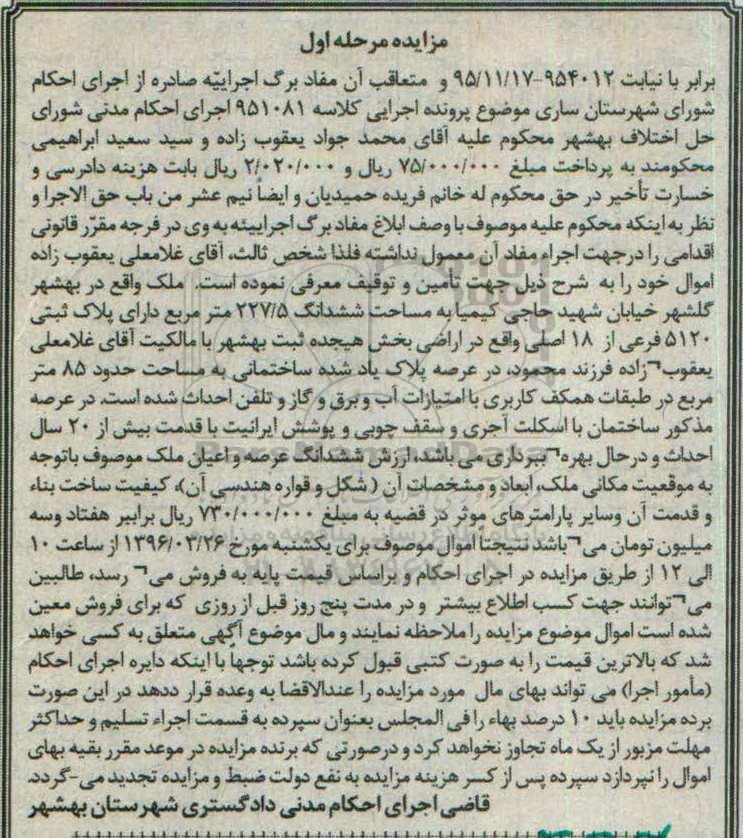 مزایده مرحله اول
برابر با نیابت ۹۵۴۰۱۲-۹۵/۱۱/۱۷ و متعاقب آن مفاد برگ اجراییّه صادره از اجرای احکام
شورای شهرستان ساری موضوع پرونده اجرایی کلاسه ۹۵۱۰۸۱ اجرای احکام مدنی شورای
حل اختلاف بهشهر محکوم علیه آقای محمد جواد یعقوب زاده و سید سعید ابراهیمی
محکومند به پرداخت مبلغ ۷۵/۰۰۰/۰۰۰ ریال و ۲/۰۲۰/۰۰۰ ریال بابت هزینه دادرسی و
خسارت تأخیر در حق محکوم له خانم فریده حمیدیان و ایضاً نیم عشر من باب حق الاجرا و
نظر به اینکه محکوم علیه موصوف با وصف ابلاغ مفاد برگ اجراییئه به وی در فرجه مقرّر قانونی
اقدامی را درجهت اجراء مفاد آن معمول نداشته فلذا شخص ثالث، آقای غلامعلی یعقوب زاده
اموال خود را به شرح ذیل جهت تأمین و توقیف معرفی نموده است. ملک واقع در بهشهر
گلشهر خیابان شهید حاجی کیمیا به مساحت ششدانگ ۲۲۷/۵ متر مربع دارای پلاک ثبتی
۵۱۲۰ فرعی از ۱۸ اصلی واقع در اراضی بخش هیجده ثبت بهشهر با مالکیت آقای غلامعلی
یعقوب¬زاده فرزند محمود، در عرصه پلاک یاد شده ساختمانی به مساحت حدود ۸۵ متر
مربع در طبقات همکف کاربری با امتیازات آب و برق و گاز و تلفن احداث شده است. در عرصه
مذکور ساختمان با اسکلت آجری و سقف چوبی و پوشش ایرانیت با قدمت بیش از ۲۰ سال
احداث و درحال بهره¬ببرداری می باشد، ارزش ششدانگ عرصه و اعیان ملک موصوف باتوجه
به موقعیت مکانی ملک، ابعاد و مشخصات آن ( شکل و قواره هندسی آن)، کیفیت ساخت بناء
و قدمت آن وسایر پارامترهای موثر در قضیه به مبلغ ۷۳۰/۰۰۰/۰۰۰ ریال برابیر هفتاد وسه
میلیون تومان می¬باشد نتیجتاً اموال موصوف برای یکشنبه مورخ ۱۳۹۶/۰۳/۲۶ از ساعت ۱۰
الی ۱۲ از طریق مزایده در اجرای احکام و براساس قیمت پایه به فروش می¬رسد، طالبین
می¬توانند جهت کسب اطلاع بیشتر و در مدت پنج روز قبل از روزی که برای فروش معین
شده است اموال موضوع مزایده را ملاحظه نمایند و مال موضوع آگهی متعلق به کسی خواهد
شد که بالاترین قیمت را به صورت کتبی قبول کرده باشد توجهاً با اینکه دایره اجرای احکام
(مأمور اجرا) می تواند بهای مال مورد مزایده را عندالاقضا به وعده قرار ددهد در این صورت
برده مزایده باید ۱۰ درصد بهاء را فی المجلس بعنوان سپرده به قسمت اجراء تسلیم و حداکثر
مهلت مزبور از یک ماه تجاوز نخواهد کرد و درصورتی که برنده مزایده در موعد مقرر بقیه بهای
اموال را نپردازد سپرده پس از کسر هزینه مزایده به نفع دولت ضبط و مزایده تجدید می-گردد.
قاضی اجرای احکام مدنی دادگستری شهرستان بهشهر